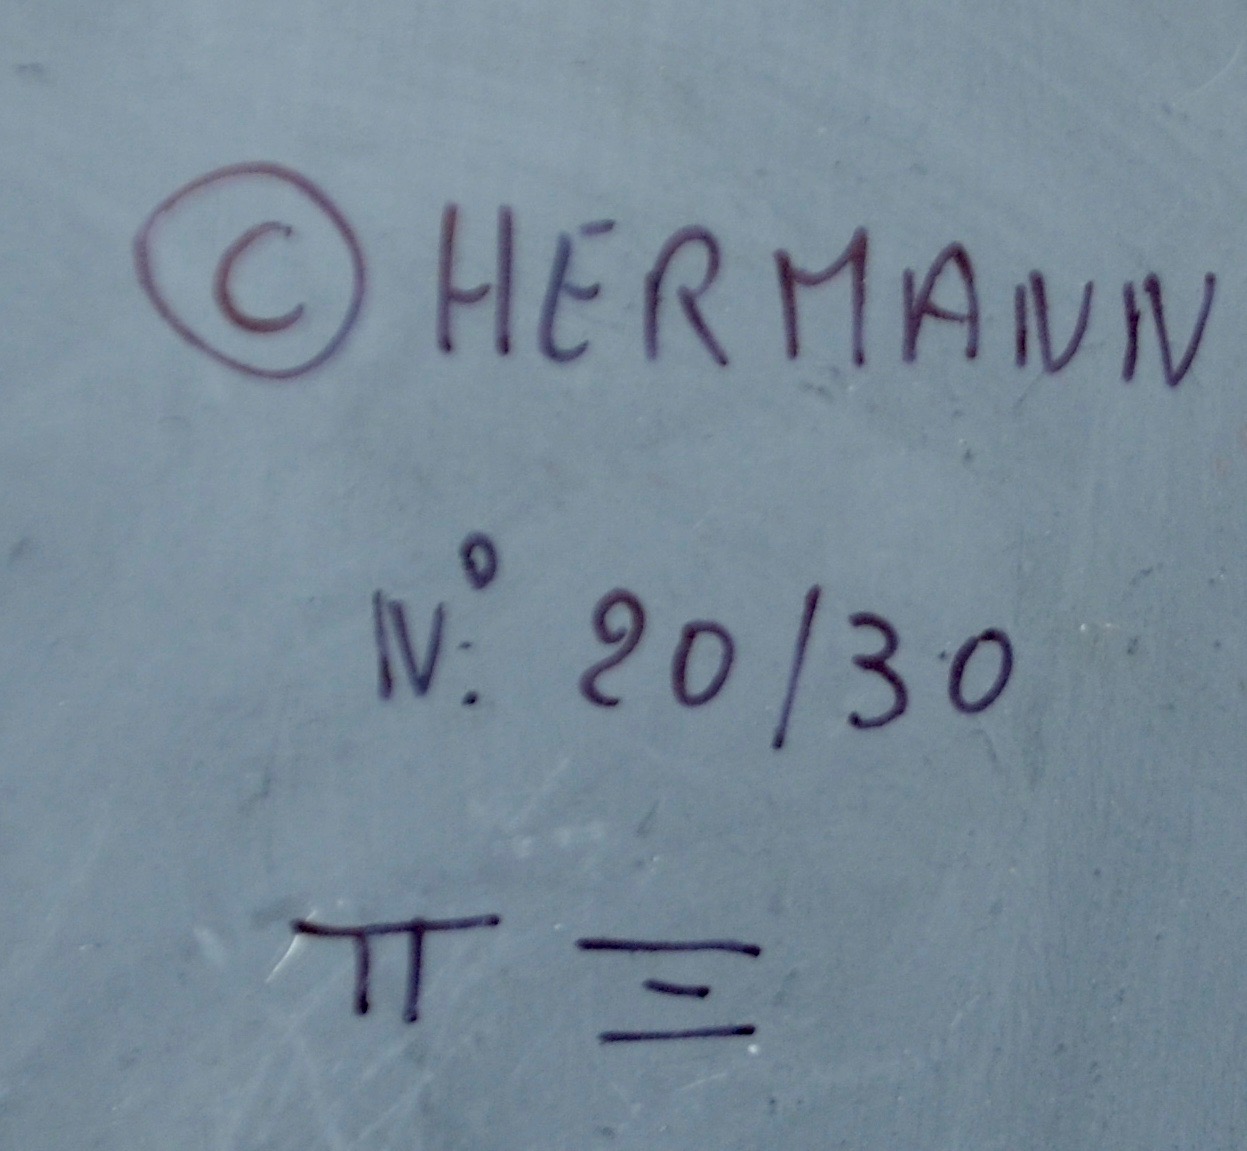 © HERMANN
N°: 20/30
Π Ξ